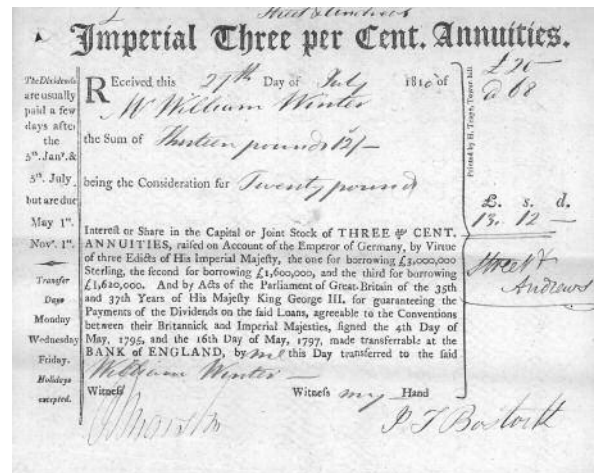 Imperial Three per Cent. Annuities.
The Dividends
are usually
paid a few
days after
the
5th. Janʸ. &
5th. July,
but are due
May 1st.
Novʳ. 1st.
Transfer
Days
Monday
Wednesday
Friday.
Holidays
excepted.
REceived this 27th Day of July 1810 of
Mr William Winter
the Sum of Thirteen pounds 12/—
being the Consideration for Twenty pounds
Interest or Share in the Capital or Joint Stock of THREE ⅌ CENT.
ANNUITIES, raised on Account of the Emperor of Germany, by Virtue
of three Edicts of His Imperial Majesty, the one for borrowing £3,000,000
Sterling, the second for borrowing £1,600,000, and the third for borrowing
£1,620,000. And by Acts of the Parliament of Great-Britain of the 35th
and 37th Years of His Majesty King George III. for guaranteeing the
Payments of the Dividends on the said Loans, agreeable to the Conventions
between their Britannick and Imperial Majesties, signed the 4th Day of
May, 1795, and the 16th Day of May, 1797, made transferrable at the
BANK of ENGLAND, by me this Day transferred to the said
William Winter —
Witness my Hand
Witness
J T Bostock
Printed by H. Teape, Tower-hill
£20
@ 68
£. s. d.
13. 12 —
Street &
Andrews